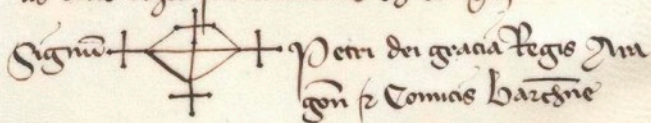 Signū Petri dei gracia Regis Ara
gon̄ ⁊ Comitis barchn̄e